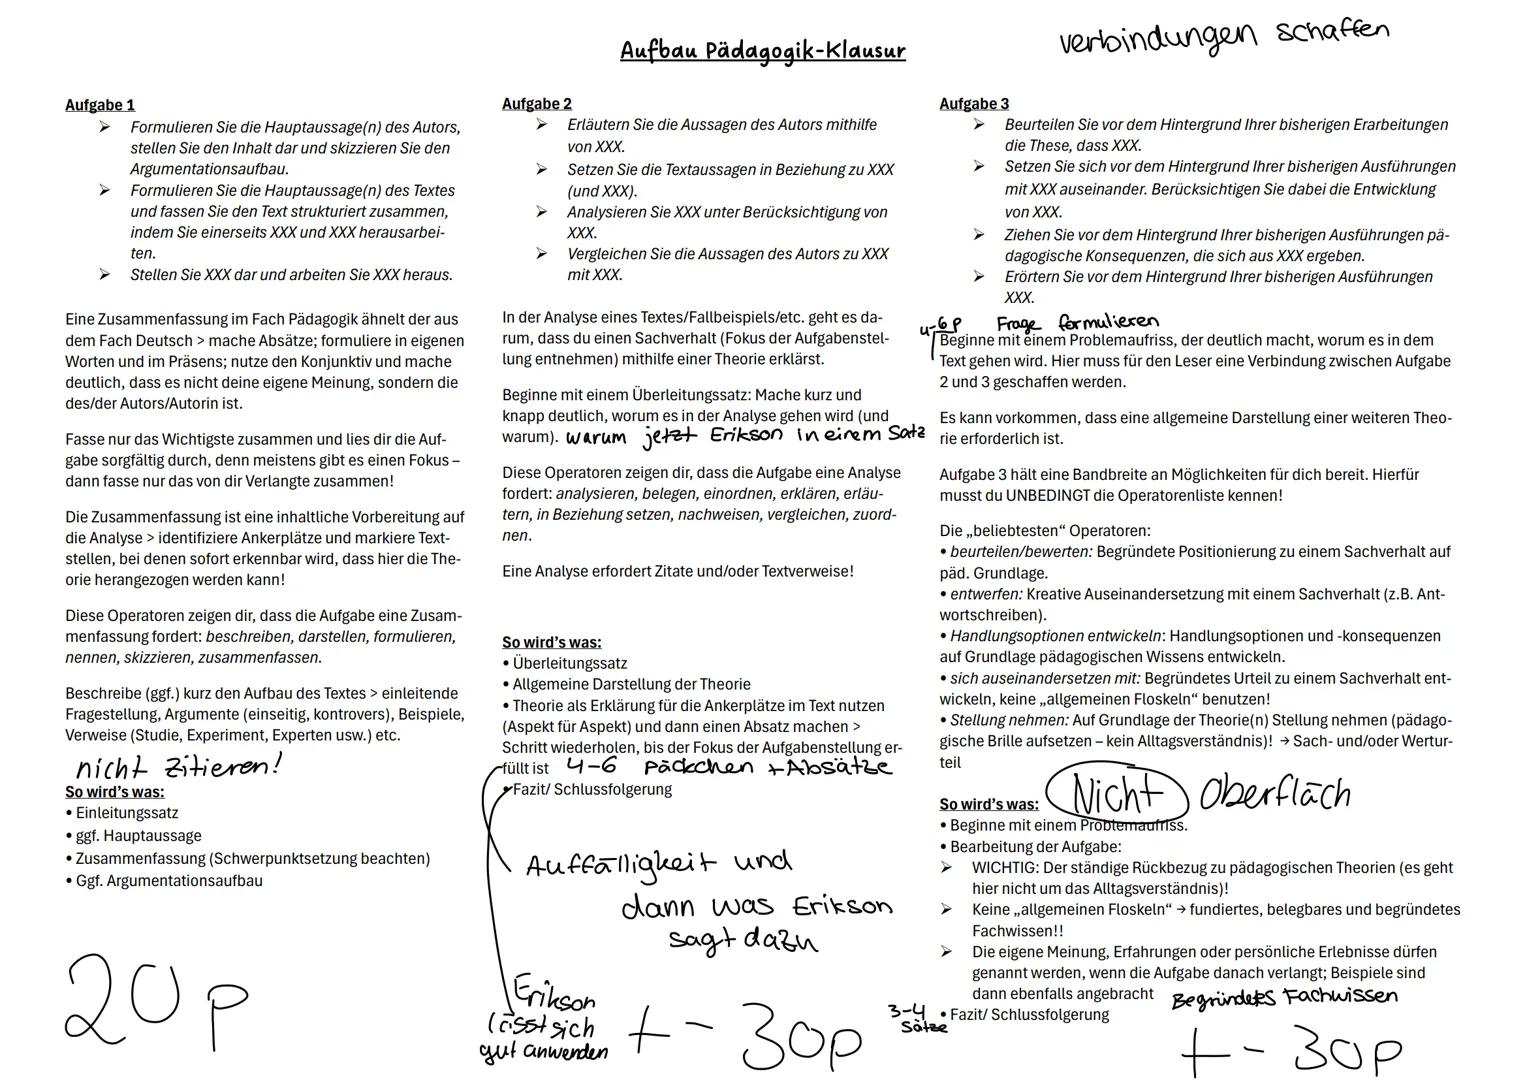 verbindungen schaffen
Aufbau Pädagogik-Klausur
Aufgabe 1
➢ Formulieren Sie die Hauptaussage(n) des Autors,
stellen Sie den Inhalt dar und skizzieren Sie den
Argumentationsaufbau.
➢ Formulieren Sie die Hauptaussage(n) des Textes
und fassen Sie den Text strukturiert zusammen,
indem Sie einerseits XXX und XXX herausarbei-
ten.
➢ Stellen Sie XXX dar und arbeiten Sie XXX heraus.
Eine Zusammenfassung im Fach Pädagogik ähnelt der aus
dem Fach Deutsch > mache Absätze; formuliere in eigenen
Worten und im Präsens; nutze den Konjunktiv und mache
deutlich, dass es nicht deine eigene Meinung, sondern die
des/der Autors/Autorin ist.
Fasse nur das Wichtigste zusammen und lies dir die Auf-
gabe sorgfältig durch, denn meistens gibt es einen Fokus –
dann fasse nur das von dir Verlangte zusammen!
Die Zusammenfassung ist eine inhaltliche Vorbereitung auf
die Analyse > identifiziere Ankerplätze und markiere Text-
stellen, bei denen sofort erkennbar wird, dass hier die The-
orie herangezogen werden kann!
Diese Operatoren zeigen dir, dass die Aufgabe eine Zusam-
menfassung fordert: beschreiben, darstellen, formulieren,
nennen, skizzieren, zusammenfassen.
Beschreibe (ggf.) kurz den Aufbau des Textes > einleitende
Fragestellung, Argumente (einseitig, kontrovers), Beispiele,
Verweise (Studie, Experiment, Experten usw.) etc.
nicht zitieren!
So wird's was:
• Einleitungssatz
• ggf. Hauptaussage
• Zusammenfassung (Schwerpunktsetzung beachten)
• Ggf. Argumentationsaufbau
20p
Aufgabe 2
➢ Erläutern Sie die Aussagen des Autors mithilfe
von XXX.
➢ Setzen Sie die Textaussagen in Beziehung zu XXX
(und XXX).
➢ Analysieren Sie XXX unter Berücksichtigung von
XXX.
➢ Vergleichen Sie die Aussagen des Autors zu XXX
mit XXX.
In der Analyse eines Textes/Fallbeispiels/etc. geht es da-
rum, dass du einen Sachverhalt (Fokus der Aufgabenstel-
lung entnehmen) mithilfe einer Theorie erklärst.
Beginne mit einem Überleitungssatz: Mache kurz und
knapp deutlich, worum es in der Analyse gehen wird (und
warum). warum jetzt Erikson in einem Satz
Diese Operatoren zeigen dir, dass die Aufgabe eine Analyse
fordert: analysieren, belegen, einordnen, erklären, erläu-
tern, in Beziehung setzen, nachweisen, vergleichen, zuord-
nen.
Eine Analyse erfordert Zitate und/oder Textverweise!
So wird's was:
• Überleitungssatz
• Allgemeine Darstellung der Theorie
• Theorie als Erklärung für die Ankerplätze im Text nutzen
(Aspekt für Aspekt) und dann einen Absatz machen >
Schritt wiederholen, bis der Fokus der Aufgabenstellung er-
füllt ist 4-6 Päckchen + Absätze
• Fazit/ Schlussfolgerung
Auffälligkeit und
dann was Erikson
sagt dazu
Erikson
lässt sich
gut anwenden
+- 30p
Aufgabe 3
➢ Beurteilen Sie vor dem Hintergrund Ihrer bisherigen Erarbeitungen
die These, dass XXX.
➢ Setzen Sie sich vor dem Hintergrund Ihrer bisherigen Ausführungen
mit XXX auseinander. Berücksichtigen Sie dabei die Entwicklung
von XXX.
➢ Ziehen Sie vor dem Hintergrund Ihrer bisherigen Ausführungen pä-
dagogische Konsequenzen, die sich aus XXX ergeben.
➢ Erörtern Sie vor dem Hintergrund Ihrer bisherigen Ausführungen
XXX.
4-6P Frage formulieren
Beginne mit einem Problemaufriss, der deutlich macht, worum es in dem
Text gehen wird. Hier muss für den Leser eine Verbindung zwischen Aufgabe
2 und 3 geschaffen werden.
Es kann vorkommen, dass eine allgemeine Darstellung einer weiteren Theo-
rie erforderlich ist.
Aufgabe 3 hält eine Bandbreite an Möglichkeiten für dich bereit. Hierfür
musst du UNBEDINGT die Operatorenliste kennen!
Die „beliebtesten“ Operatoren:
• beurteilen/bewerten: Begründete Positionierung zu einem Sachverhalt auf
päd. Grundlage.
• entwerfen: Kreative Auseinandersetzung mit einem Sachverhalt (z.B. Ant-
wortschreiben).
• Handlungsoptionen entwickeln: Handlungsoptionen und -konsequenzen
auf Grundlage pädagogischen Wissens entwickeln.
• sich auseinandersetzen mit: Begründetes Urteil zu einem Sachverhalt ent-
wickeln, keine „allgemeinen Floskeln“ benutzen!
• Stellung nehmen: Auf Grundlage der Theorie(n) Stellung nehmen (pädago-
gische Brille aufsetzen – kein Alltagsverständnis)! → Sach- und/oder Wertur-
teil
Nicht Oberfläch
So wird's was:
• Beginne mit einem Problemaufriss.
• Bearbeitung der Aufgabe:
➢ WICHTIG: Der ständige Rückbezug zu pädagogischen Theorien (es geht
hier nicht um das Alltagsverständnis)!
➢ Keine „allgemeinen Floskeln“ → fundiertes, belegbares und begründetes
Fachwissen!!
➢ Die eigene Meinung, Erfahrungen oder persönliche Erlebnisse dürfen
genannt werden, wenn die Aufgabe danach verlangt; Beispiele sind
dann ebenfalls angebracht Begründetes Fachwissen
3-4 Sätze • Fazit/ Schlussfolgerung
+- 30p